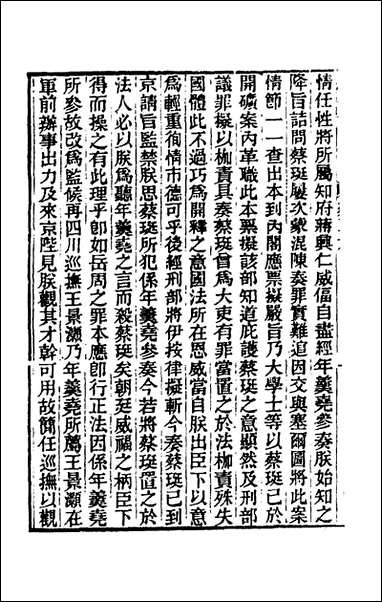 情任性將所屬知府蔣興仁威偪自盡經年羹堯參奏朕始知之
降旨詰問蔡珽屢次蒙混陳奏罪實難逭因交與塞爾圖將此案
情節一一查出本到內閣應票擬嚴旨乃大學士等以蔡珽已於
開礦案內革職此本票擬該部知道庇護蔡珽之意顯然及刑部
議罪擬以枷責具奏蔡珽曾爲大吏有罪當置之於法枷責殊失
國體此不過巧爲開釋之意國法所在恩威當自朕出臣下以意
爲輕重徇情市德可乎後經刑部將伊按律擬斬今奏蔡珽已到
京請旨監禁朕思蔡珽所犯係年羹堯參奏今若將蔡珽置之於
法人必以朕爲聽年羹堯之言而殺蔡珽矣朝廷威福之柄臣下
得而操之有此理乎卽如岳周之罪本應卽行正法因係年羹堯
所參故改爲監候再四川巡撫王景灝乃年羹堯所薦王景灝在
軍前辦事出力及來京陛見朕觀其才幹可用故簡任巡撫以觀